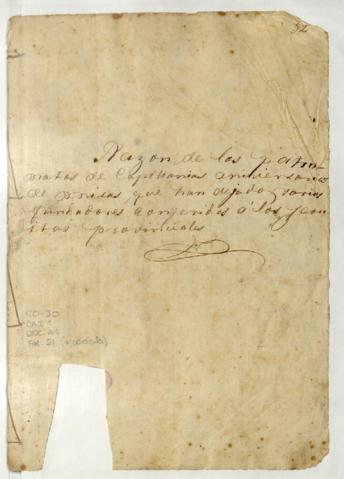 Razon de los patro
natos de Capellanias aniversarios
de misas que han dejado varios
fundadores conferidos á los Jesu
itas provinciales
CO-30
CAJ 1
DOC 49
Fol. 21 (+ carátula)